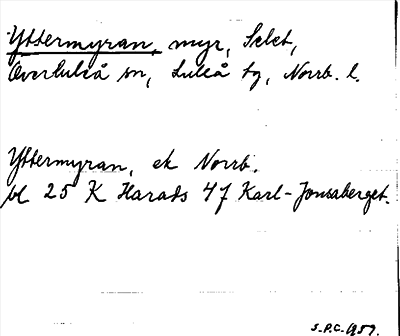 Yttermyran, myr, Selet,
Överluleå sn, Luleå tg, Norrb. l.
Yttermyran, ek Norrb.
bl 25 K Harads 4J Karl-Jonsaberget.
S.P.C. 1957.